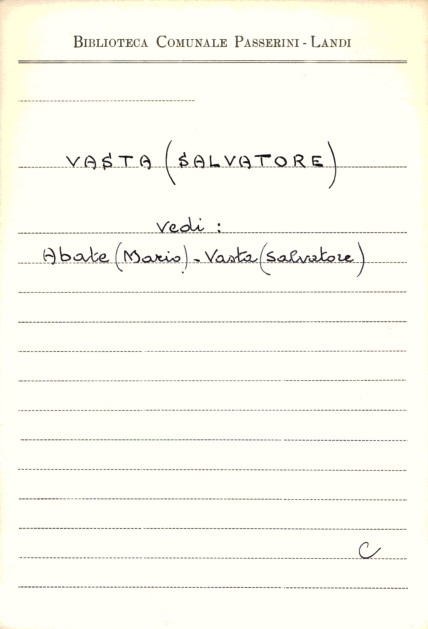 BIBLIOTECA COMUNALE PASSERINI - LANDI
VASTA (SALVATORE)
vedi :
Abate (Mario) - Vasta (Salvatore)
C